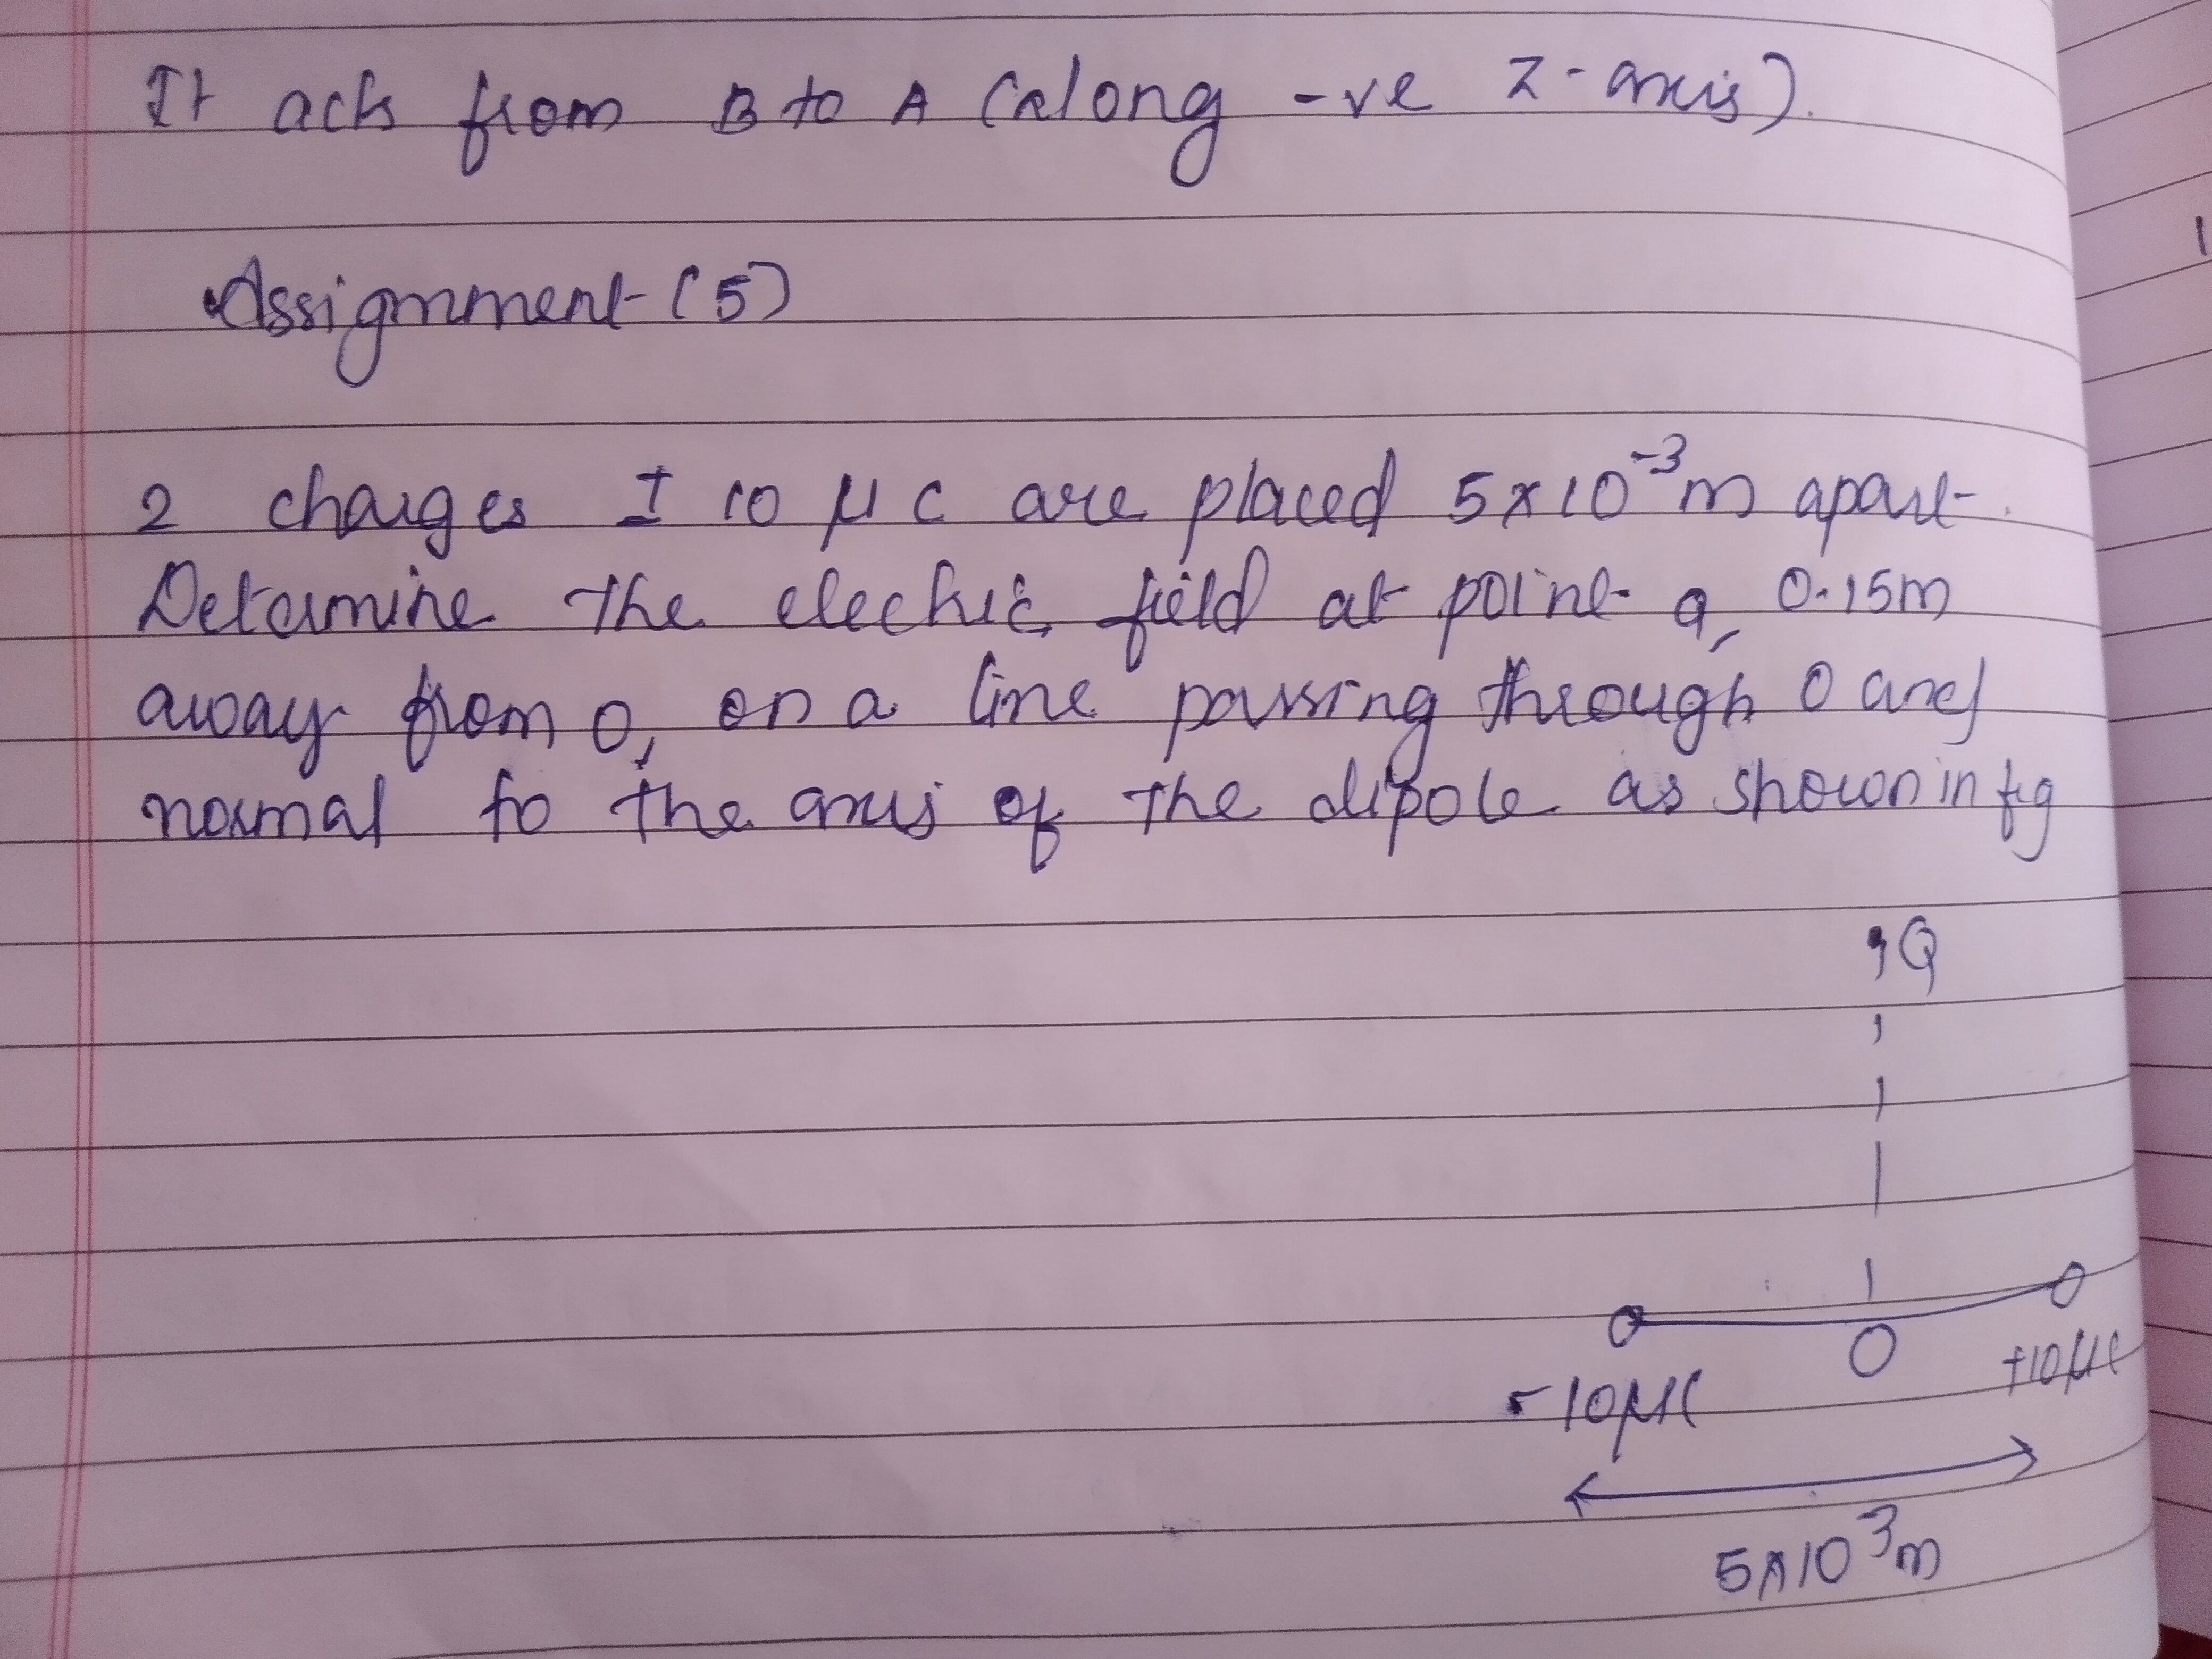 It acts from B to A (along -ve z-axis).
Assignment (5)
2 charges ± 10 μc are placed 5x10⁻³ m apart.
Determine the electric field at point q, 0.15m
away from 0, on a line passing through 0 and
normal to the axis of the dipole as shown in fig
Q
O
-10μc
+10μc
5x10⁻³m